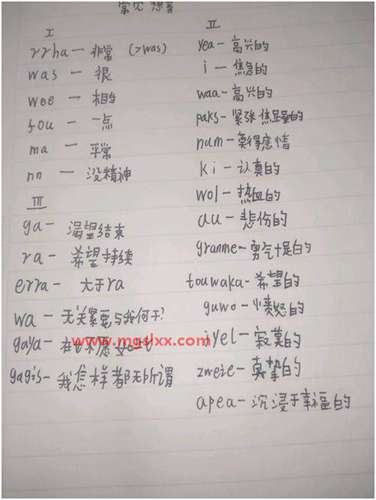 常见
I
rrha — 非常 (>was)
was — 很
wee — 相当
fou — 一点
ma — 平常
nn — 没精神
III
ga — 渴望结束
ra — 希望持续
erra — 大于ra
wa — 无关紧要与我何干?
www.mgslxx.com
gaya —
gagis — 我怎样都无所谓
II
yea — 高兴的
i — 焦急的
waa — 高兴的
paks — 紧张
num — 莫得感情
ki — 认真的
wol — 热血的
au — 悲伤的
granme — 勇气十足的
touwaka — 希望的
guwo — 愤怒的
jyel — 寂寞的
zweie — 真挚的
apea — 沉浸于幸福的